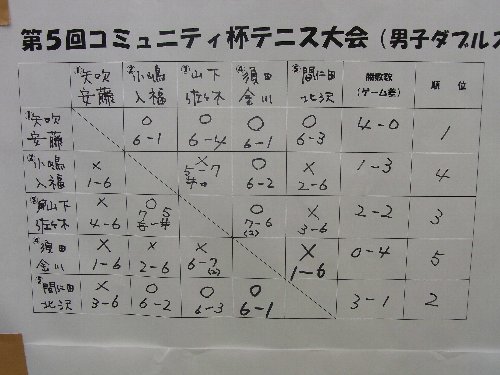 第5回コミュニティ杯テニス大会（男子ダブルス
①矢吹 安藤 ②小嶋 入福 ③山下 佐々木 ④須田 金川 ⑤間仁田 北沢 勝敗数 (ゲーム差) 順 位
①矢吹 安藤 ○ 6-1 ○ 6-4 ○ 6-1 ○ 6-3 4-0 1
②小嶋 入福 × 1-6 × 5-7 ○ 6-2 × 2-6 1-3 4
③山下 佐々木 × 4-6 ○ 7-5 ○ 7-6 (2) × 3-6 2-2 3
④須田 金川 × 1-6 × 2-6 × 6-7 (2) × 1-6 0-4 5
⑤間仁田 北沢 × 3-6 ○ 6-2 ○ 6-3 ○ 6-1 3-1 2